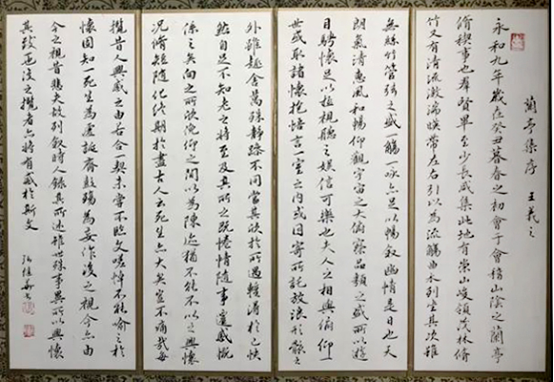 蘭亭集序 王羲之
永和九年歲在癸丑暮春之初會于會稽山陰之蘭亭
脩稧事也羣賢畢至少長咸集此地有崇山峻領茂林脩
竹又有清流激湍暎帶左右引以為流觴曲水列坐其次雖
無絲竹管弦之盛一觴一詠亦足以暢叙幽情是日也天
朗氣清惠風和暢仰觀宇宙之大俯察品類之盛所以遊
目騁懷足以極視聽之娛信可樂也夫人之相與俯仰一
世或取諸懷抱悟言一室之內或因寄所託放浪形骸之
外雖趣舍萬殊靜躁不同當其欣於所遇暫得於己快
然自足不知老之將至及其所之既惓情隨事遷感慨
係之矣向之所欣俛仰之間以為陳迹猶不能不以之興懷
況脩短隨化終期於盡古人云死生亦大矣豈不痛哉每
攬昔人興感之由若合一契未嘗不臨文嗟悼不能喻之於
懷固知一死生為虛誕齊彭殤為妄作後之視今亦由
今之視昔悲夫故列叙時人錄其所述雖世殊事異所以興懷
其致一也後之攬者亦將有感於斯文